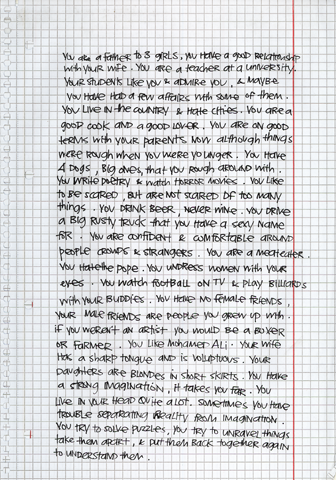 You are a father to 3 girls, you have a good relationship
with your wife. You are a teacher at a university.
Your students like you & admire you, & maybe
you have had a few affairs with some of them.
You live in the country & hate cities. You are a
good cook and a good lover. You are on good
terms with your parents now although things
were rough when you were younger. You have
4 dogs, big ones, that you rough around with.
You write poetry & watch horror movies. You like
to be scared, but are not scared of too many
things. You drink beer, never wine. You drive
a big rusty truck that you have a sexy name
for. You are confident & comfortable around
people crowds & strangers. You are a meateater.
You hate the Pope. You undress women with your
eyes. You watch football on TV & play billiards
with your buddies. You have no female friends,
your male friends are people you grew up with.
if you weren't an artist you would be a boxer
or farmer. You like Mohamed Ali. Your wife
has a sharp tongue and is voluptuous. Your
daughters are blondes in short skirts. You have
a strong imagination, it takes you far. You
live in your head quite a lot. Sometimes you have
trouble seperating reality from imagination.
You try to solve puzzles, you try to unravel things
take them apart, & put them back together again
to understand them.